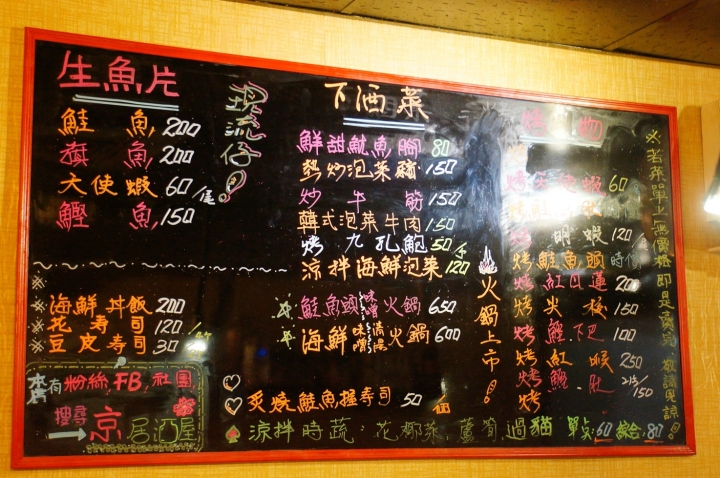 生魚片
鮭魚 200
旗魚 200
大使蝦 60/尾
鰹魚 150
現流仔!
海鮮丼飯 200
花壽司 120
豆皮壽司 30
本店有粉絲、FB、社團
搜尋
京居酒屋
下酒菜
鮮甜魷魚腳 80
熱炒泡菜豬 150
炒牛筋 150
韓式泡菜牛肉 150
烤九孔鮑 50/个
涼拌海鮮泡菜 120
鮭魚頭味噌火鍋 650
海鮮味噌清湯火鍋 600
火鍋上市!
炙燒鮭魚握壽司 50/個
涼拌時蔬:花椰菜,蘆筍,過貓 單點:60 綜合:80
烤 物
60
明蝦 120
烤鮭魚頭 時價
烤紅目蓮 200
烤 150
烤鰹下巴 100
烤紅 250
烤鰹肚 150
烤
※若菜單上無價格即是賣完,敬請見諒!